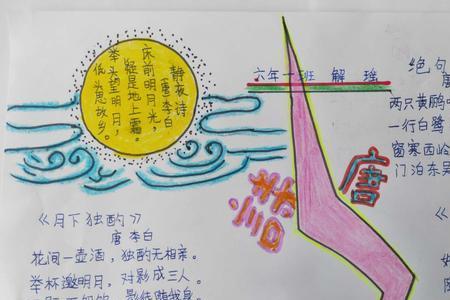 静夜诗
（唐）李白
床前明月光，
疑是地上霜。
举头望明月，
低头思故乡。
六年一班 解瑶
唐诗
《月下独酌》
唐 李白
花间一壶酒，独酌无相亲。
举杯邀明月，对影成三人。
影徒随我身
《绝句
唐
两只黄鹂
一行白鹭
窗寒西岭
门泊东吴